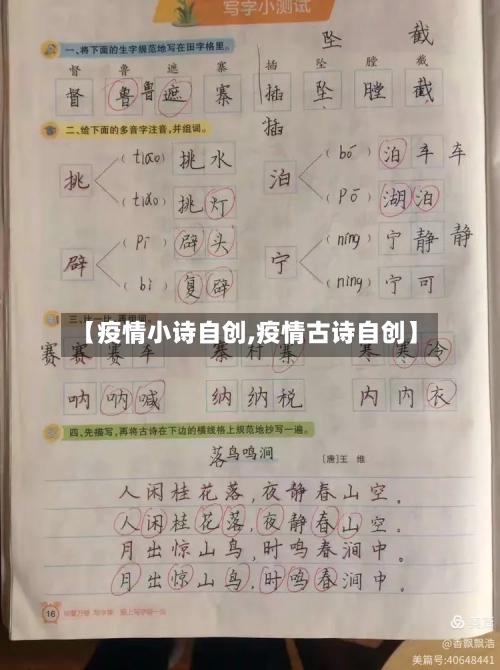 写字小测试
坠 截
一、将下面的生字规范地写在田字格里。
督 鲁 遮 寨 插 坠 膛 截
督 鲁 鲁 遮 寨 插 坠 膛 截
插
二、给下面的多音字注音,并组词。
挑
(tiāo) 挑水
(tiǎo) 挑灯
泊
(bó) 泊车 车
(pō) 湖泊
辟
(pī) 辟头
(bì) 复辟
宁
(níng) 宁静 静
(nìng) 宁可
三、比一比,再组词。
【疫情小诗自创,疫情古诗自创】
赛 赛 赛车 寨 村寨 寒 寒冷
呐 呐喊 纳 纳税 内 内衣
四、先描写,再将古诗在下边的横线格上规范地抄写一遍。
鸟鸣涧
[唐]王 维
人闲桂花落,夜静春山空。
人闲桂花落,夜静春山空。
月出惊山鸟,时鸣春涧中。
月出惊山鸟,时鸣春涧中。
16
美篇
@香飘飘浩
美篇号:40648441